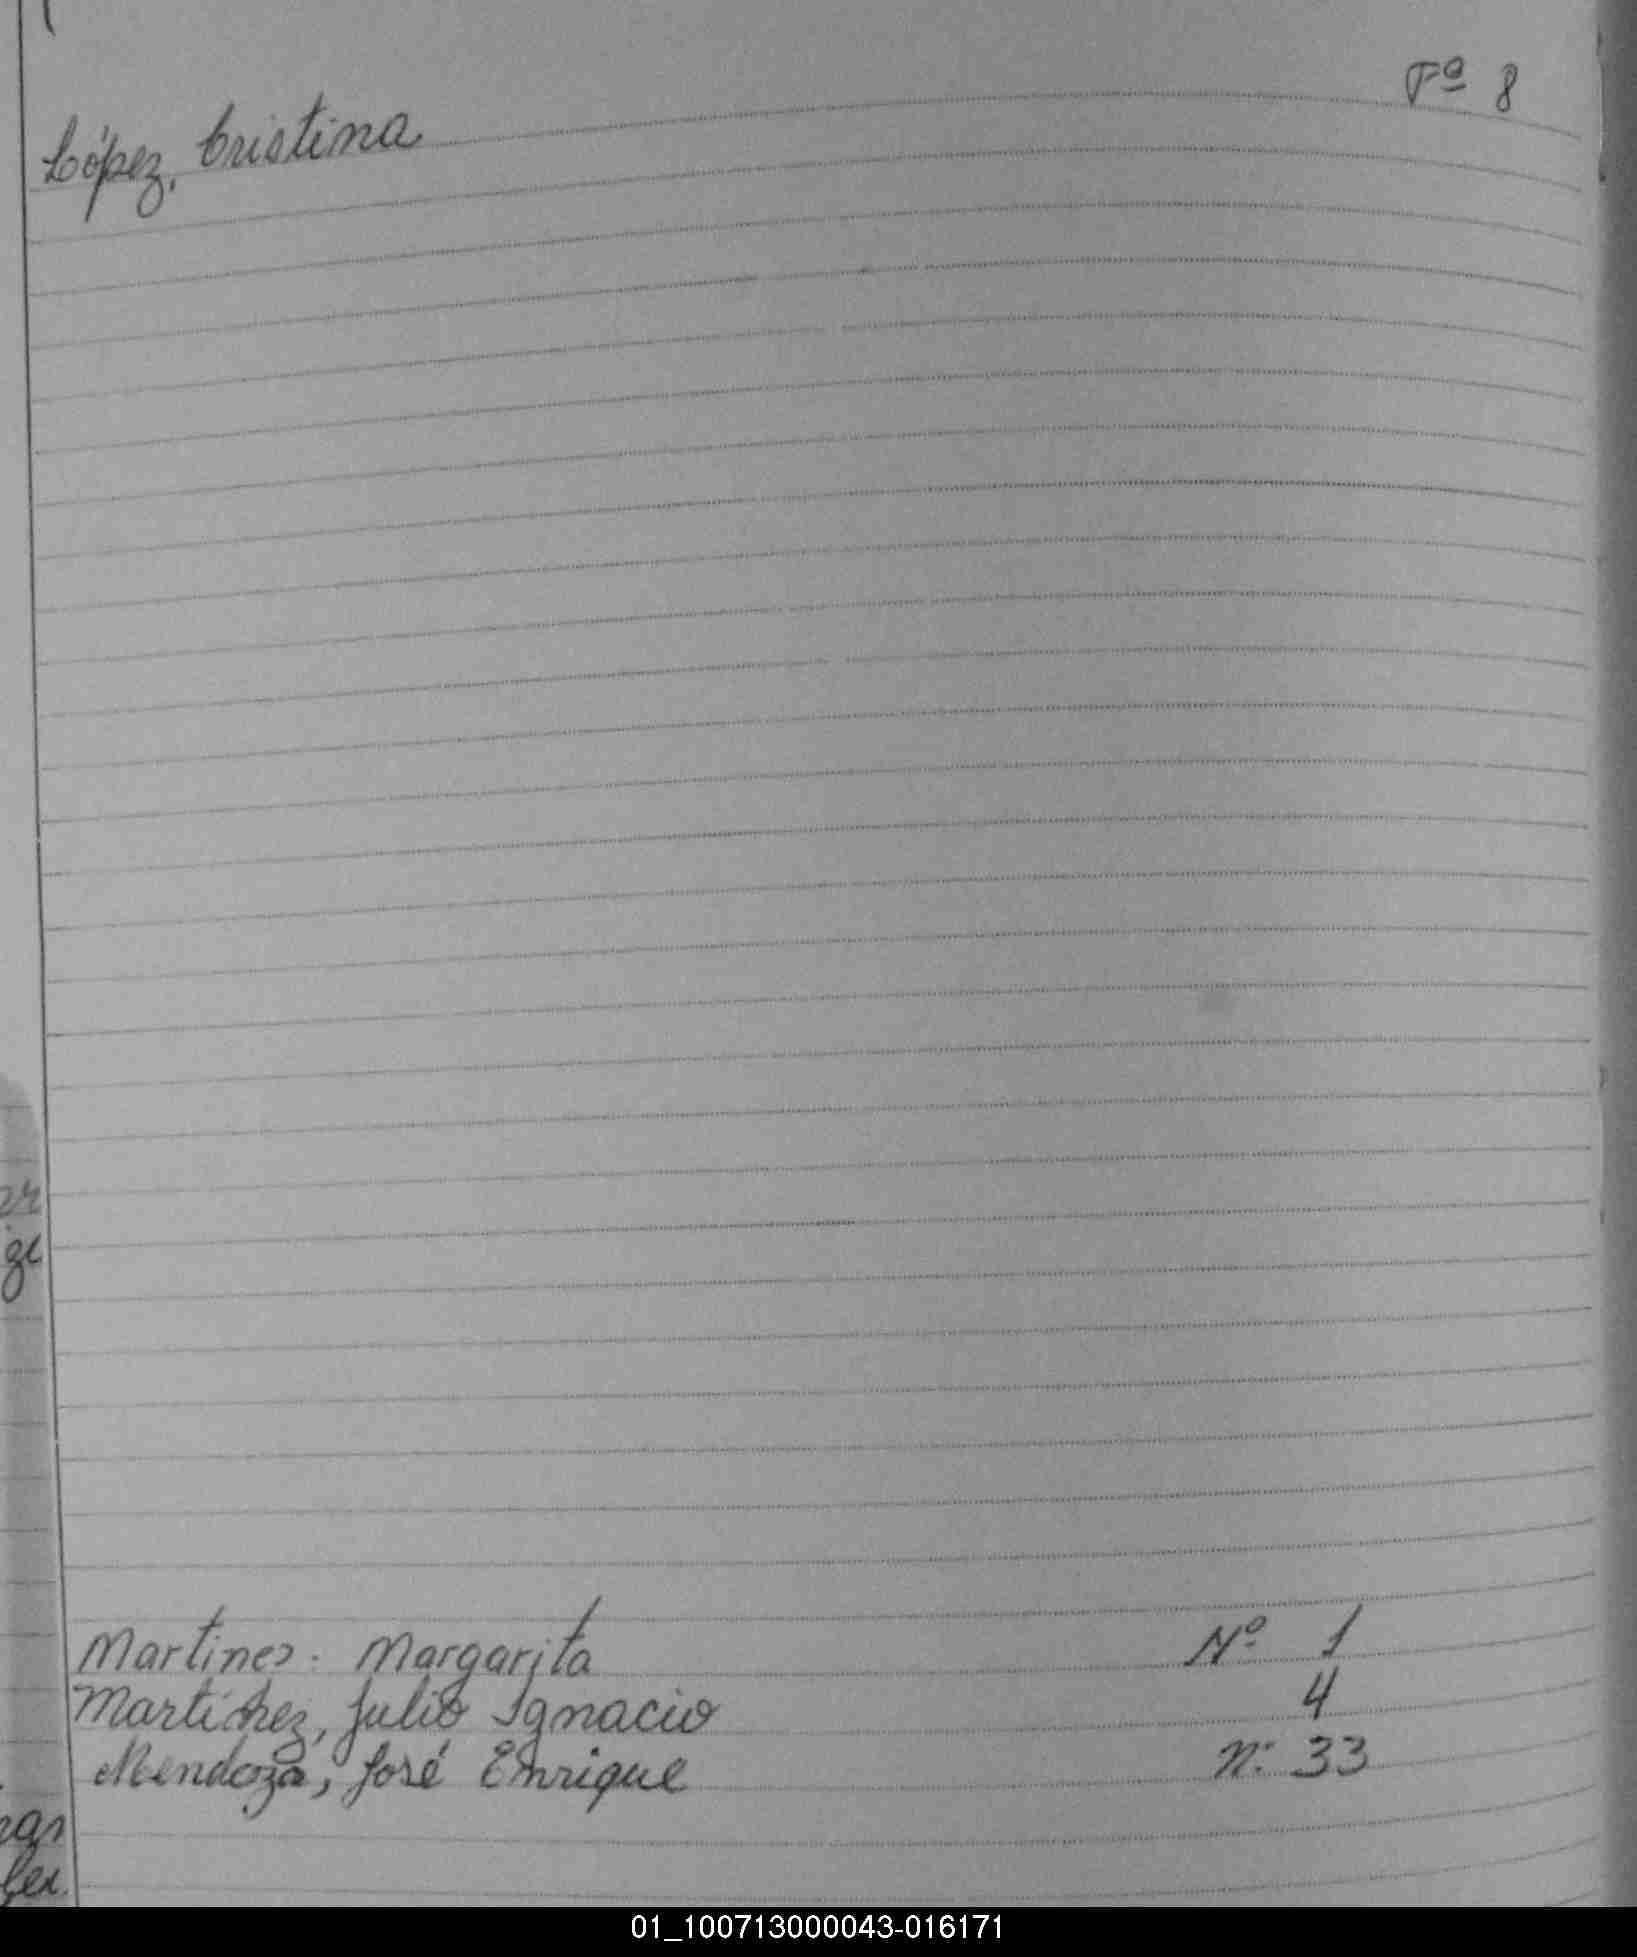 Fº 8
López, Cristina
Martines. Margarita Nº 1
Martínez, Julio Ignacio 4
Mendoza, José Enrique n: 33
01_100713000043-016171